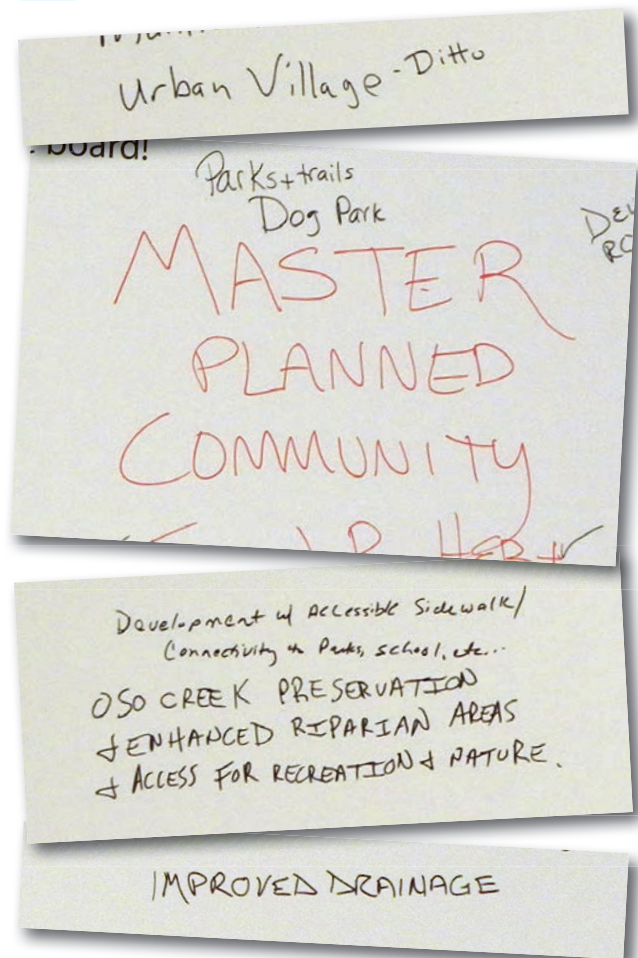 Urban Village - Ditto
board!
Parks + trails
Dog Park
MASTER
PLANNED
COMMUNITY
Development w/ Accessible Sidewalk/
Connectivity to Parks, school, etc...
OSO CREEK PRESERVATION
+ ENHANCED RIPARIAN AREAS
+ ACCESS FOR RECREATION + NATURE.
IMPROVED DRAINAGE